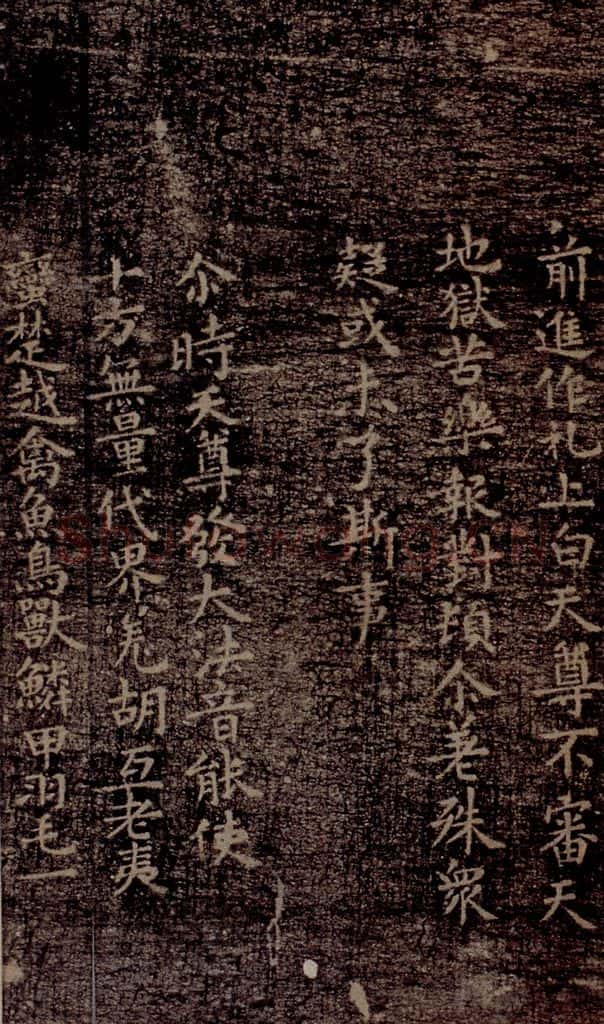 前進作礼上白天尊不審天
地獄苦樂報對頃尒差殊衆
疑或未了斯事
尒時天尊發大法音能使
十方無量代界羌胡互老夷
蛮楚越禽魚鳥獸鱗甲羽毛一